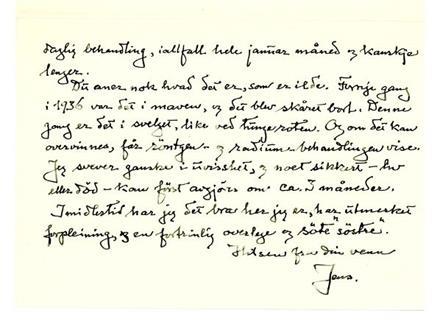 daglig behandling, iallfall hele januar måned og kanskje
lenger.
Du aner nok hvad det er, som er ilde. Forrige gang
i 1936 var det i maven, og det blev skåret bort. Denne
gang er det i svelget, like ved tungeroten. Og om det kan
overvinnes, får röntgen- og radium-behandlingen vise.
Jeg svever ganske i uvisshet, og noet sikkert - liv
eller död - kan först avgjöres om ca. 3 måneder.
Imidlertid har jeg det bra her jeg er, har utmerket
forpleining, og en fortrinlig overlege og "söte söstre".
Hilsen fra din venn
Jens.